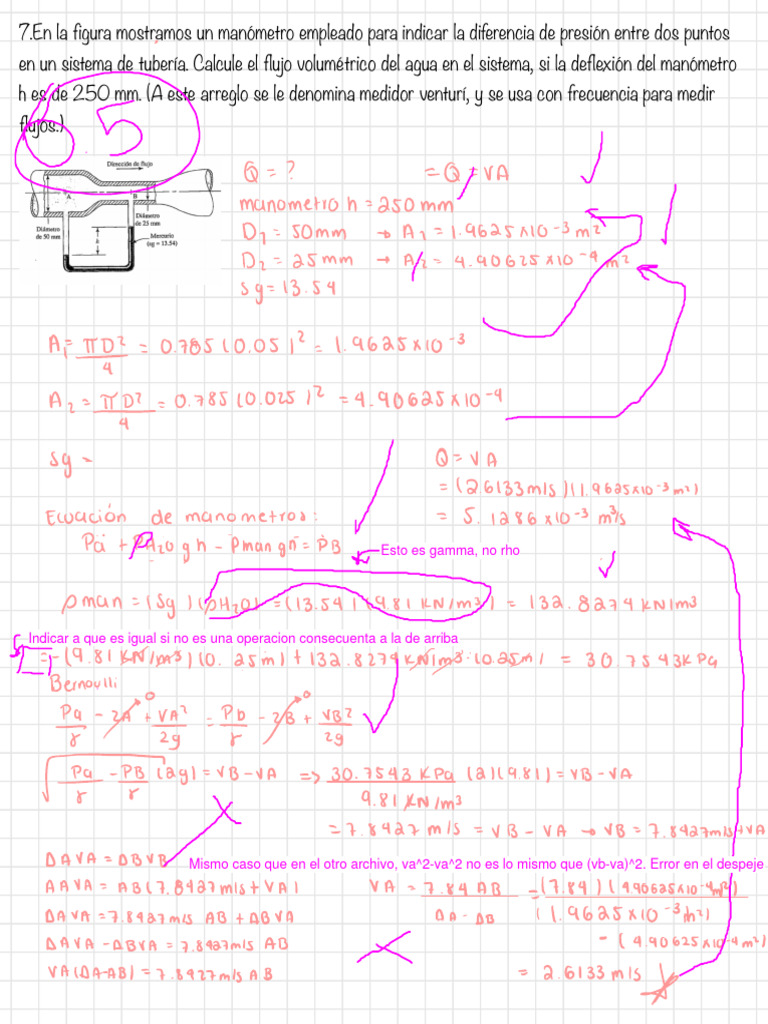 7.En la figura mostramos un manómetro empleado para indicar la diferencia de presión entre dos puntos
en un sistema de tubería. Calcule el flujo volumétrico del agua en el sistema, si la deflexión del manómetro
h es de 250 mm. (A este arreglo se le denomina medidor venturí, y se usa con frecuencia para medir
flujos.)
6.5
Dirección de flujo
A
B
Diámetro
de 50 mm
Diámetro
de 25 mm
h
Mercurio
(sg = 13.54)
Q = ? = Q = VA
manometro h = 250 mm
D1 = 50mm → A1 = 1.9625x10-3 m2
D2 = 25mm → A2 = 4.90625x10-4 m2
Sg = 13.54
A1 = πD2/4 = 0.785 (0.05)2 = 1.9625x10-3
A2 = πD2/4 = 0.785 (0.025)2 = 4.90625x10-4
Sg =
Q = VA
= (2.6133 m/s)(1.9625x10-3 m2)
= 5.1286x10-3 m3/s
Ecuación de manometros:
Pa + ρH2O g h - ρman gh = PB
Esto es gamma, no rho
ρman = (Sg)(ρH2O) = (13.54)(9.81 KN/m3) = 132.8274 KN/m3
Indicar a que es igual si no es una operacion consecuenta a la de arriba
= -(9.81 KN/m3)(0.25m) + 132.8274 KN/m3 · (0.25m) = 30.7543 KPa
Bernoulli
Pa/γ - ZA + VA2/2g = Pb/γ - ZB + VB2/2g
√ Pa/γ - PB/γ (2g) = VB - VA => 30.7543 KPa/9.81 KN/m3 (2)(9.81) = VB - VA
= 7.8427 m/s = VB - VA → VB = 7.8427m/s + VA
AAVA = ABVB
Mismo caso que en el otro archivo, va^2-va^2 no es lo mismo que (vb-va)^2. Error en el despeje
AAVA = AB(7.8427 m/s + VA)
AAVA = 7.8427 m/s AB + ABVA
AAVA - ABVA = 7.8427 m/s AB
VA(AA-AB) = 7.8427 m/s AB
VA = 7.84 AB/AA - AB = (7.84)(4.90625x10-4 m2)/(1.9625x10-3 m2)
- (4.90625x10-4 m2)
= 2.6133 m/s